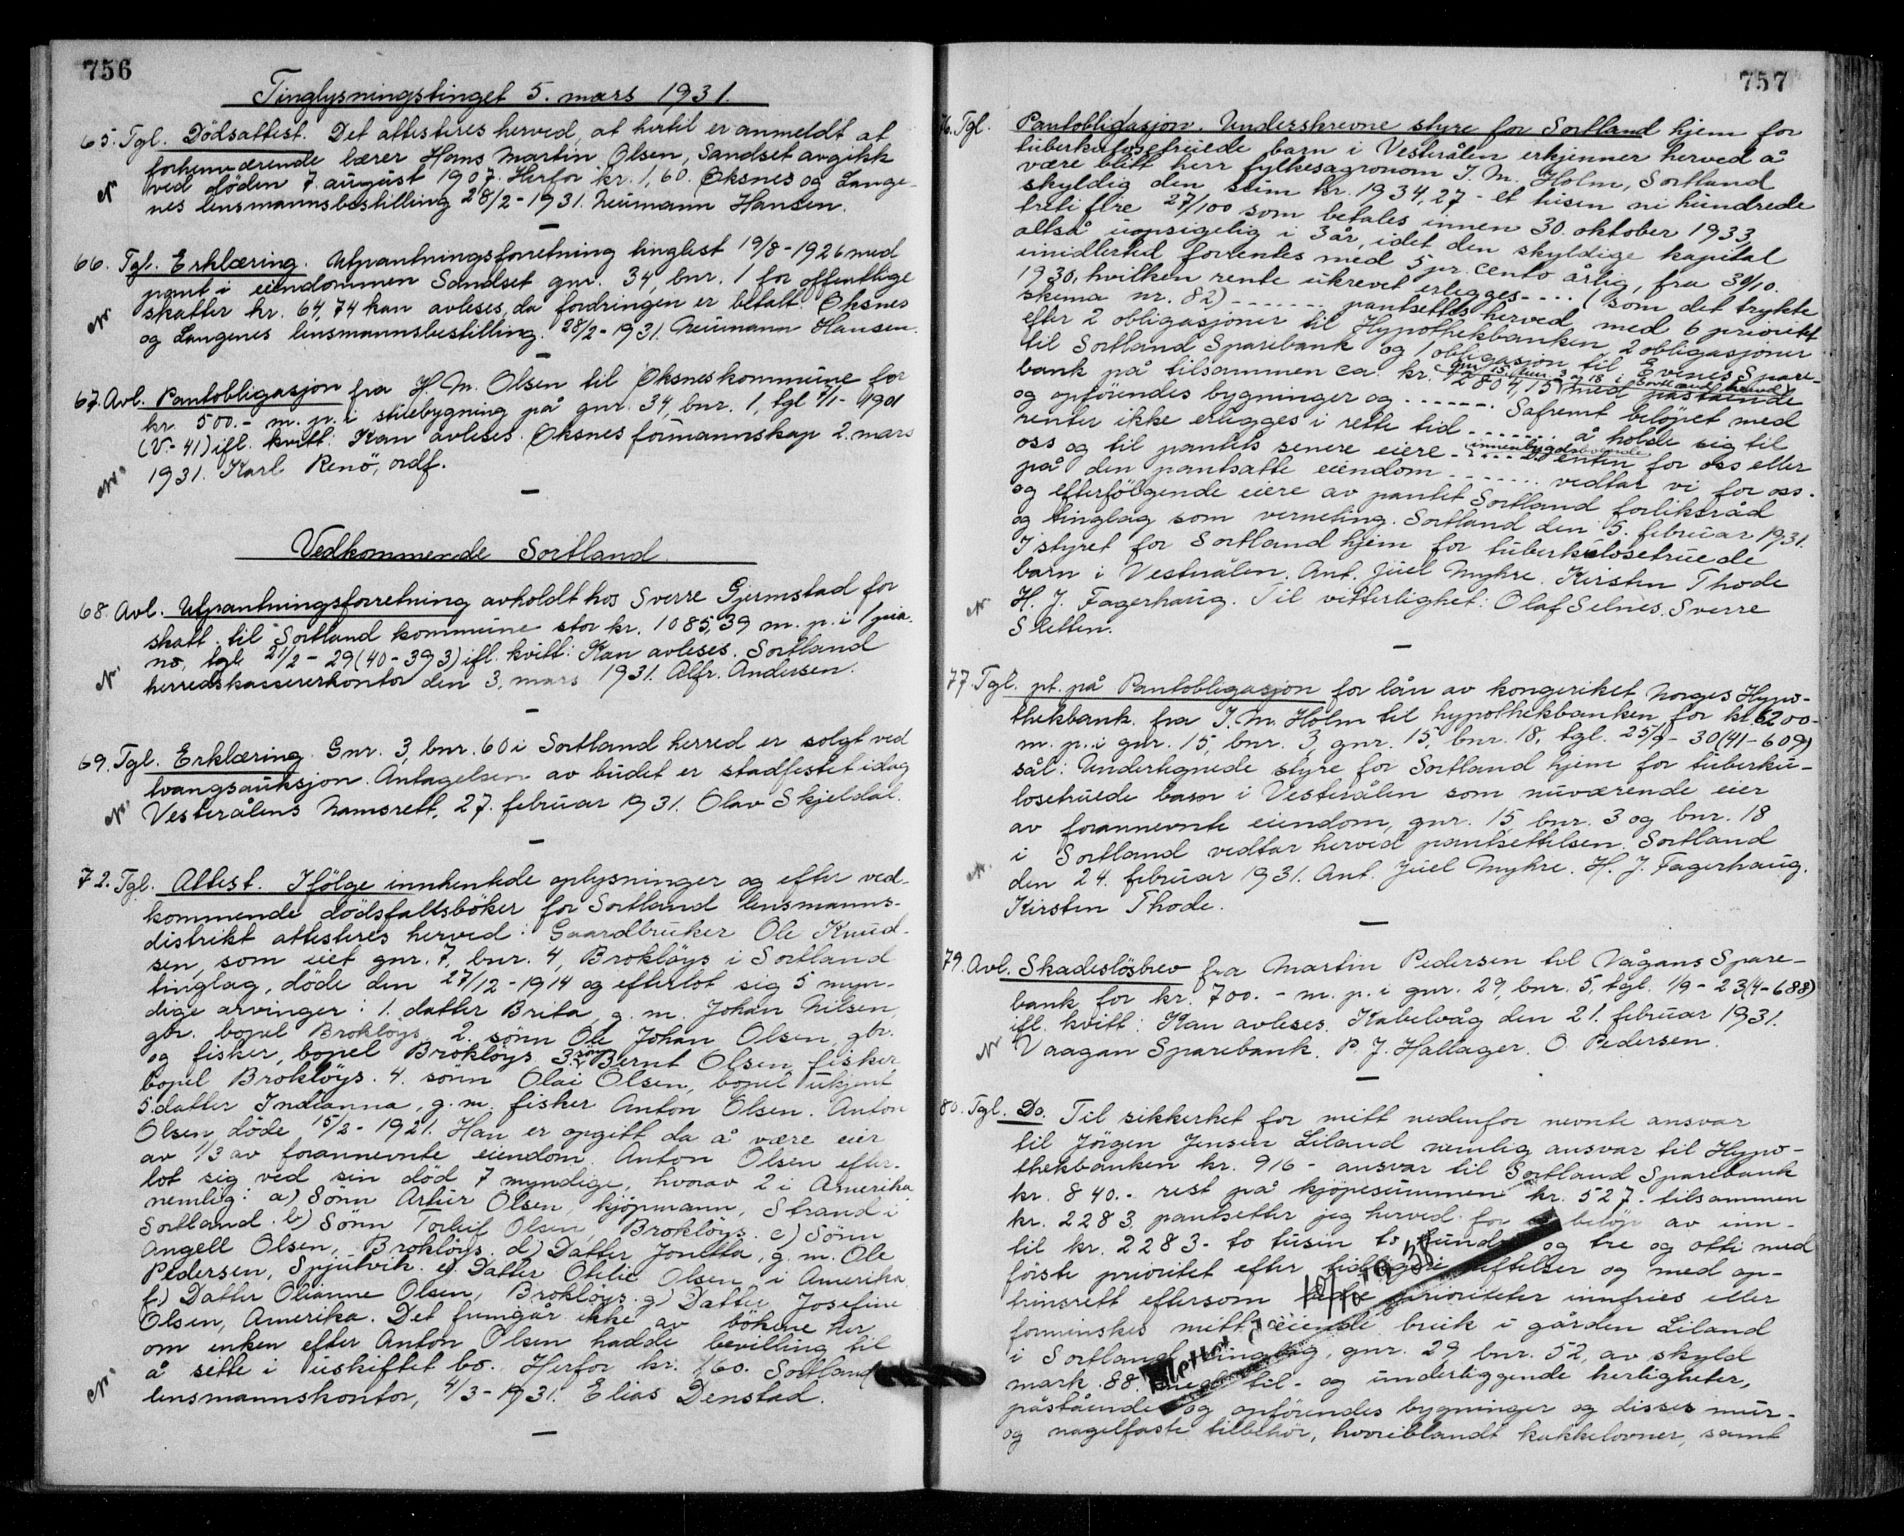 756
Tinglysningstinget 5. mars 1931.
65. Tgl. Dödsattest. Det attesteres herved, at hertil er anmeldt at
forhenværende lærer Hans Martin Olsen, Sandset avgikk
ved döden 7. august 1907. Herfor kr. 1,60. Öksnes og Lange-
nes lensmannsbestilling 28/2-1931. Neumann Hansen.
66. Tgl. Erklæring. Utpantningsforretning tinglest 19/8-1926 med
pant i eiendommen Sandset gnr. 34, bnr. 1 for offentlige
skatter kr. 64,74 kan avleses, da fordringen er betalt. Öksnes
og Langenes lensmannsbestilling. 28/2-1931. Neumann Hansen.
67. Avl. Pantobligasjon fra H. M. Olsen til Öksnes kommune for
kr. 500.- m. p. i stuebygning på gnr. 34, bnr. 1, tgl 1/1-1901
(V-41) ifl. kvitt: Kan avleses. Öksnes formannskap 2. mars
1931. Karl Renö, ordf.
Vedkommende Sortland
68. Avl. Utpantningsforretning avholdt hos Sverre Gjermstad for
skatt til Sortland kommune stor kr. 1085,39 m. p. i 1 pia-
no, tgl. 21/2-29 (40-393) ifl. kvitt: Kan avleses. Sortland
herredskassererkontor den 3. mars 1931. Alfr. Andersen.
69. Tgl. Erklæring. Gnr. 3, bnr. 60 i Sortland herred er solgt ved
tvangsauksjon. Antagelsen av budet er stadfestet idag
Vesterålens Namsrett, 27. februar 1931. Olav Skjeldal.
72. Tgl. Attest. Ifölge innhentede oplysninger og efter ved-
kommende dödsfallsböker for Sortland lensmanns-
distrikt attesteres herved: Gaardbruker Ole Knud-
sen, som eiet gnr. 7, bnr. 4, Broklöys i Sortland
tinglag, döde den 27/12-1914 og efterlot sig 5 myn-
dige arvinger: 1. datter Brita, g. m. Johan Nilsen,
gbr. bopel Broklöys, 2. sönn Ole Johan Olsen, gbr.
og fisker, bopel Broklöys 3. sönn Bernt Olsen, fisker
bopel Broklöys. 4. sönn Olai Olsen, bopel ukjent
5. datter Indianna, g. m. fisker Anton Olsen. Anton
Olsen döde 15/2-1921. Han er opgitt da å være eier
av 1/3 av forannevnte eiendom. Anton Olsen efter-
lot sig ved sin död 7 myndige, hvorav 2 i Amerika
nemlig: a) Sönn Artur Olsen, kjöpmann, Strand i
Sortland. b) Sönn Torleif Olsen, Broklöys. c) Sönn
Angell Olsen, Broklöys. d) Datter Jonetta, g. m. Ole
Pedersen, Spjutvik. e) Datter Otelie Olsen, i Amerika,
f) Datter Olianne Olsen, Broklöys. g) Datter Josefine
Olsen, Amerika. Det fremgår ikke av bökene her
om enken efter Anton Olsen hadde bevilling til
å sette i uskiftet bo. Herfor kr. 1,60. Sortland
lensmannskontor, 4/3-1931. Elias Denstad.
757
76. Tgl. Pantobligasjon. Underskrevne styre for Sortland hjem for
tuberkulosetruede barn i Vesterålen erkjenner herved å
være blitt herr fylkesagronom I. M. Holm, Sortland
skyldig den sum kr. 1934,27 - et tusen ni hundrede
tretifire 27/100 som betales innen 30. oktober 1933,
altså uopsigelig i 3 år, idet den skyldige kapital
imidlertid forrentes med 5 pr. cento årlig, fra 30/10.
1930, hvilken rente ukrevet erlegges .... (som det trykte
skema nr. 82) ....... pantsettes herved med 6 prioritet
efter 2 obligasjoner til Hypothekbanken, 2 obligasjoner
til Sortland Sparebank og 1 obligasjon til Evenes Spare-
bank på tilsammen ca. kr. 12804,15 med påstående
gnr 15, bnr. 3 og 18 i Sortland herred
og opförendes bygninger og ....... Såfremt belöpet med
renter ikke erlegges i rette tid ....... å holde sig til
oss og til pantets senere eiere ....... enten for oss eller
innenbygdsboende
på den pantsatte eiendom ....... vedtar vi for oss
og efterfölgende eiere av pantet Sortland forliksråd
og tinglag som verneting. Sortland den 5. februar 1931.
I styret for Sortland hjem for tuberkulosetruede
barn i Vesterålen. Ant. Juel Myhre. Kirsten Thode
H. J. Fagerhaug. Til vitterlighet: Olaf Selnes. Sverre
Sletten.
77. Tgl. pt. på Pantobligasjon for lån av kongeriket Norges Hypo-
thekbank fra I. M. Holm til hypothekbanken for kr. 6200-
m. p. i gnr. 15, bnr. 3, gnr. 15, bnr. 18, tgl. 25/9-30 (41-609)
sål: Undertegnede styre for Sortland hjem for tuberku-
losetruede barn i Vesterålen som nuværende eier
av forannevnte eiendom, gnr. 15 bnr. 3 og bnr. 18
i Sortland vedtar herved pantsettelsen. Sortland
den 24. februar 1931. Ant. Juel Myhre. H. J. Fagerhaug.
Kirsten Thode.
79. Avl. Skadeslösbrev fra Martin Pedersen til Vågans Spare-
bank for kr. 700.- m. p. i gnr. 29, bnr. 5, tgl. 1/9-23 (4-688)
ifl. kvitt: Kan avleses. Kabelvåg den 21. februar 1931.
Vaagan Sparebank. P. J. Hallager. O. Pedersen.
80. Tgl. Do. Til sikkerhet for mitt nedenfor nevnte ansvar
til Jörgen Jensen Liland nemlig ansvar til Hypo-
thekbanken kr. 916- ansvar til Sortland Sparebank
kr. 840.- rest på kjöpesummen kr. 527- tilsammen
kr. 2283. pantsetter jeg herved for belöp av inn-
til kr. 2283- to tusin to hundre og tre og otti med
förste prioritet efter tidligere heftelser og med op-
trinsrett eftersom prioriteter innfries eller
forminskes mitt eiende bruk i gården Liland
i Sortland tinglag, gnr. 29 bnr. 52, av skyld
mark .88. med til- og underliggende herligheter,
påstående og opförendes bygninger og disses mur-
og nagelfaste tilbehör, hvoriblandt kakkelovner, samt